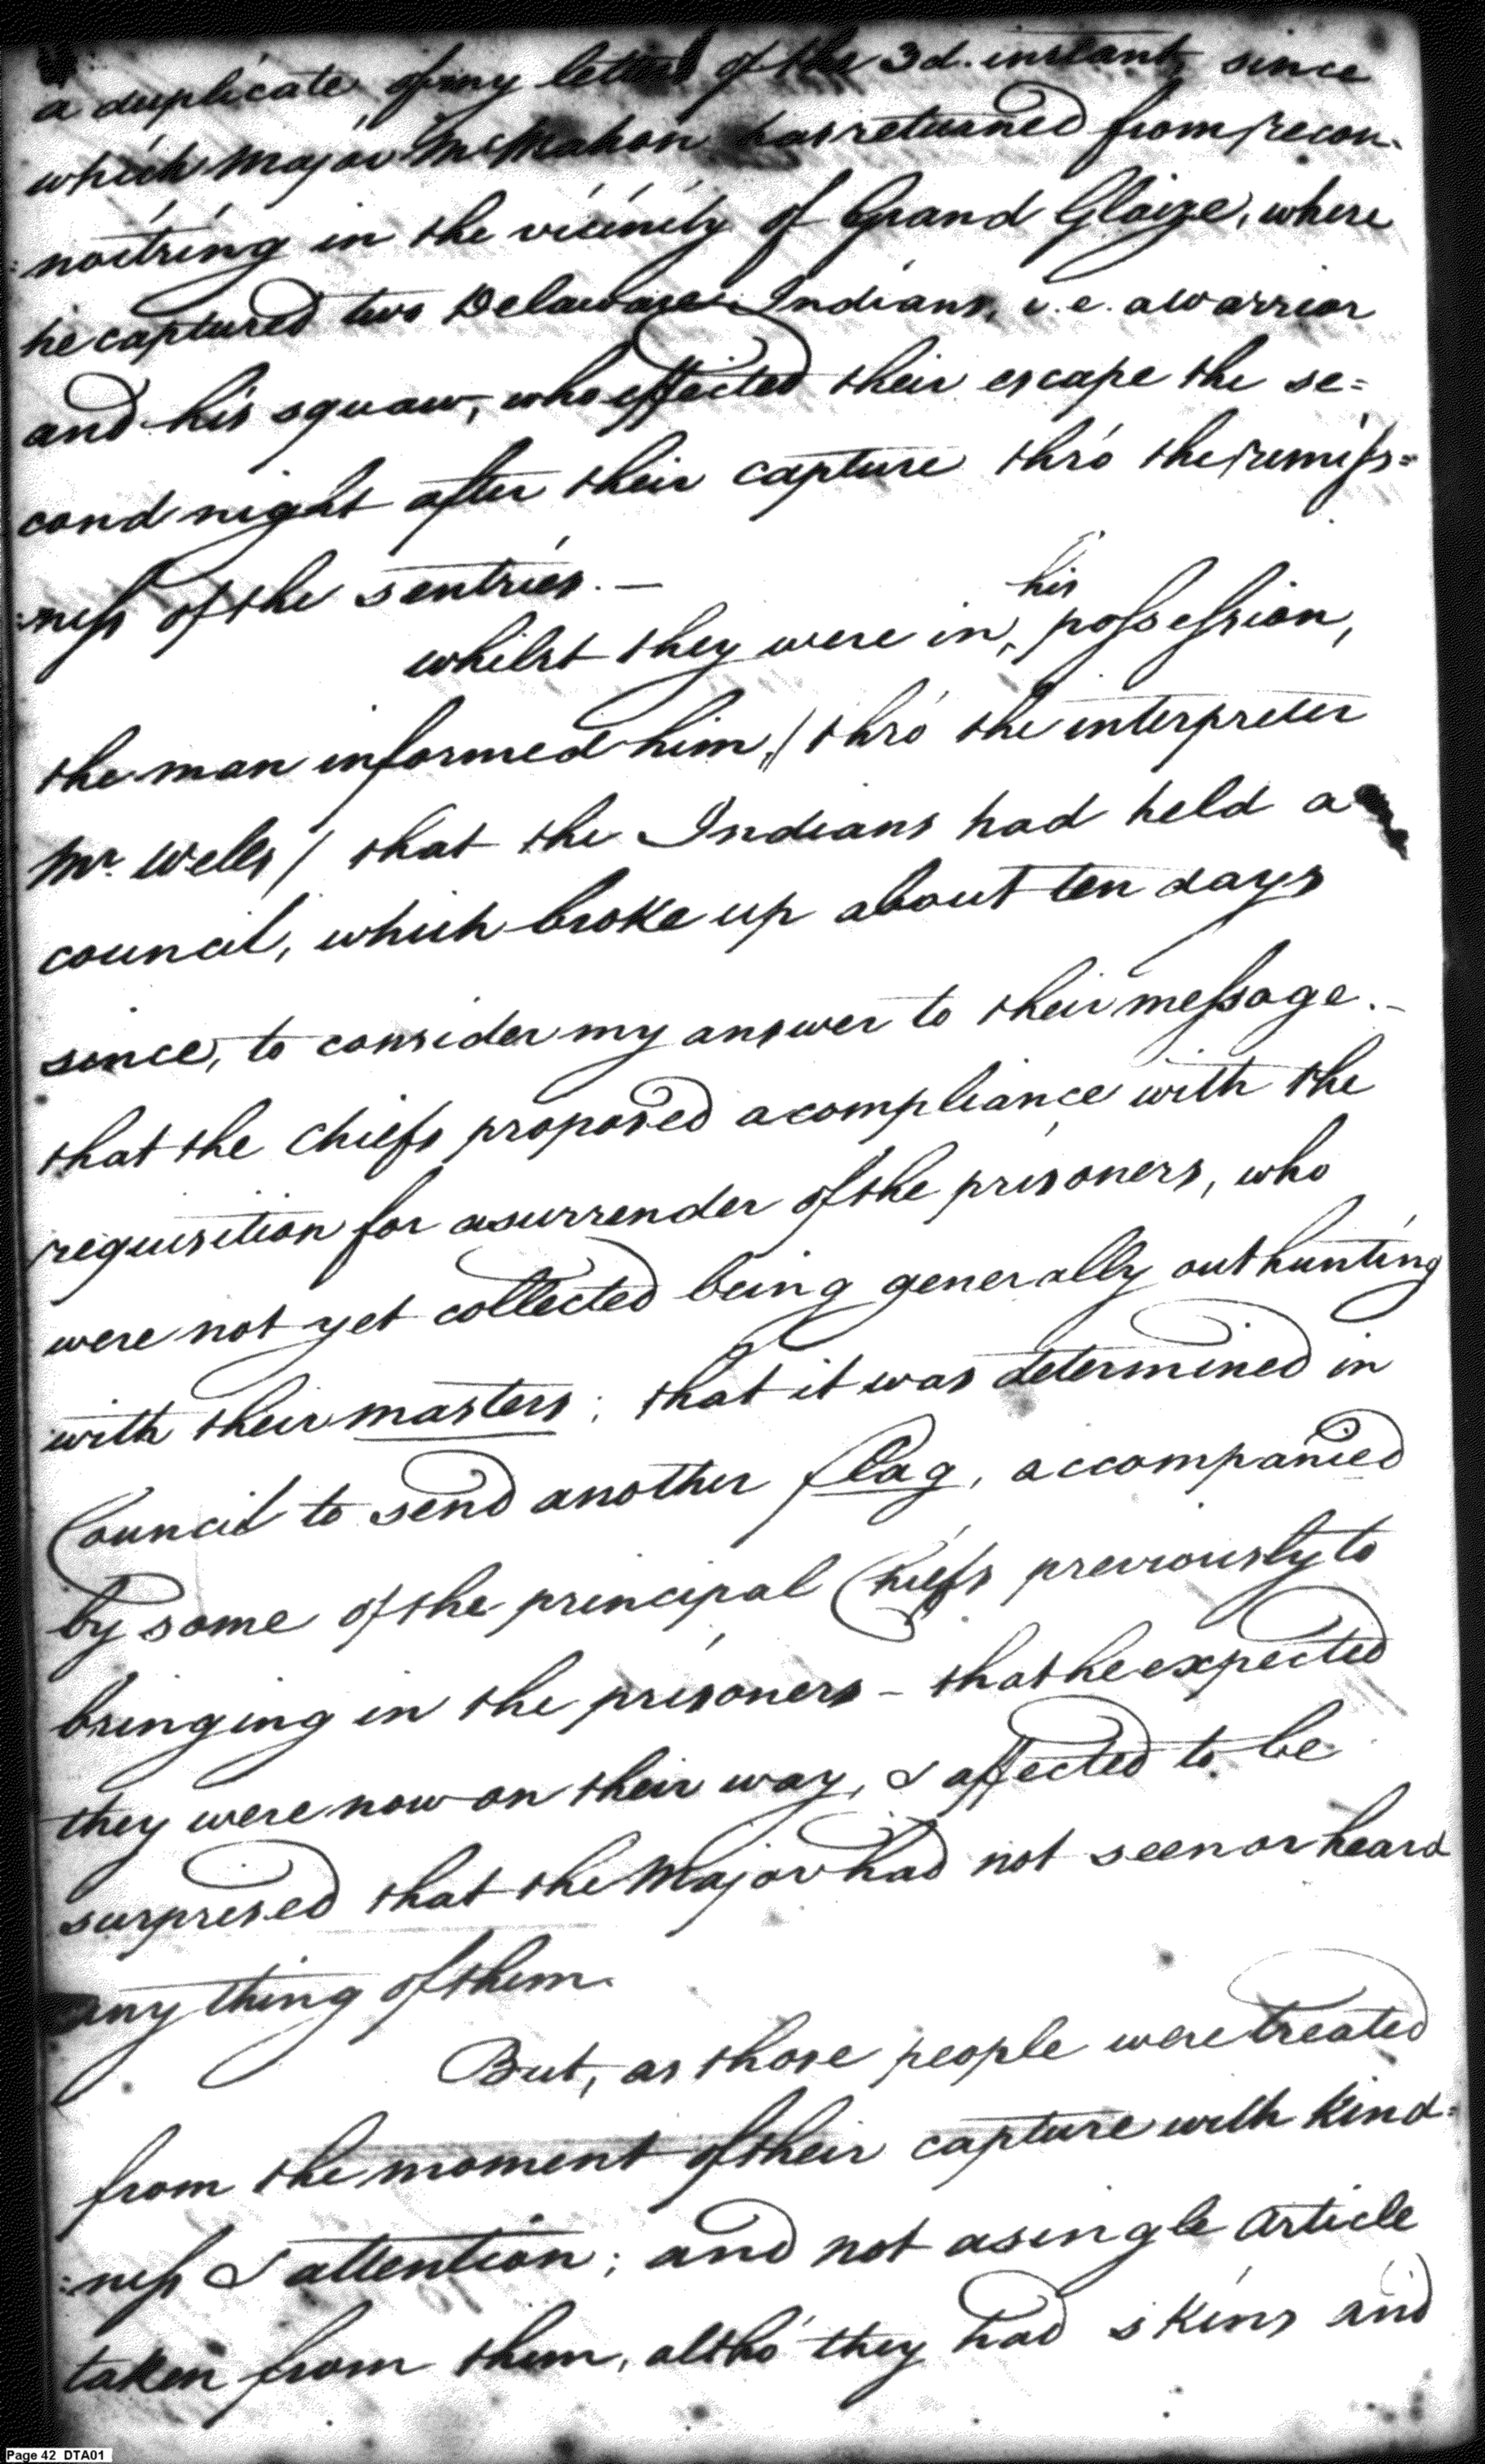 a duplicate of my letter of the 3d. instant, since
which Major McMahon has returned from recon-
:noitring in the vicinity of Grand Glaize, where
he captured two Delaware Indians, i.e. a Warrior
and his squaw, who effected their escape the se=
cond night after their capture thro' the remiss=
:ness of the sentries. —
whilst they were in ‸ his possession,
the man informed him, / thro' the interpreter
Mr. Wells / that the Indians had held a
council, which broke up about ten days
since, to consider my answer to their message. –
that the Chiefs proposed a compliance with the
requisition for a surrender of the prisoners, who
were not yet collected being generally out hunting
with their masters; that it was determined in
Council to send another flag, accompanied
by some of the principal Chiefs previously to
bringing in the prisoners – that he expected
they were now on their way, & affected to be
surprised that the Major had not seen or heard
any thing of them.
But, as those people were treated
from the moment of their capture with kind=
:ness & attention; and not a single article
taken from them, altho' they had skins and
Page 42 DTA01